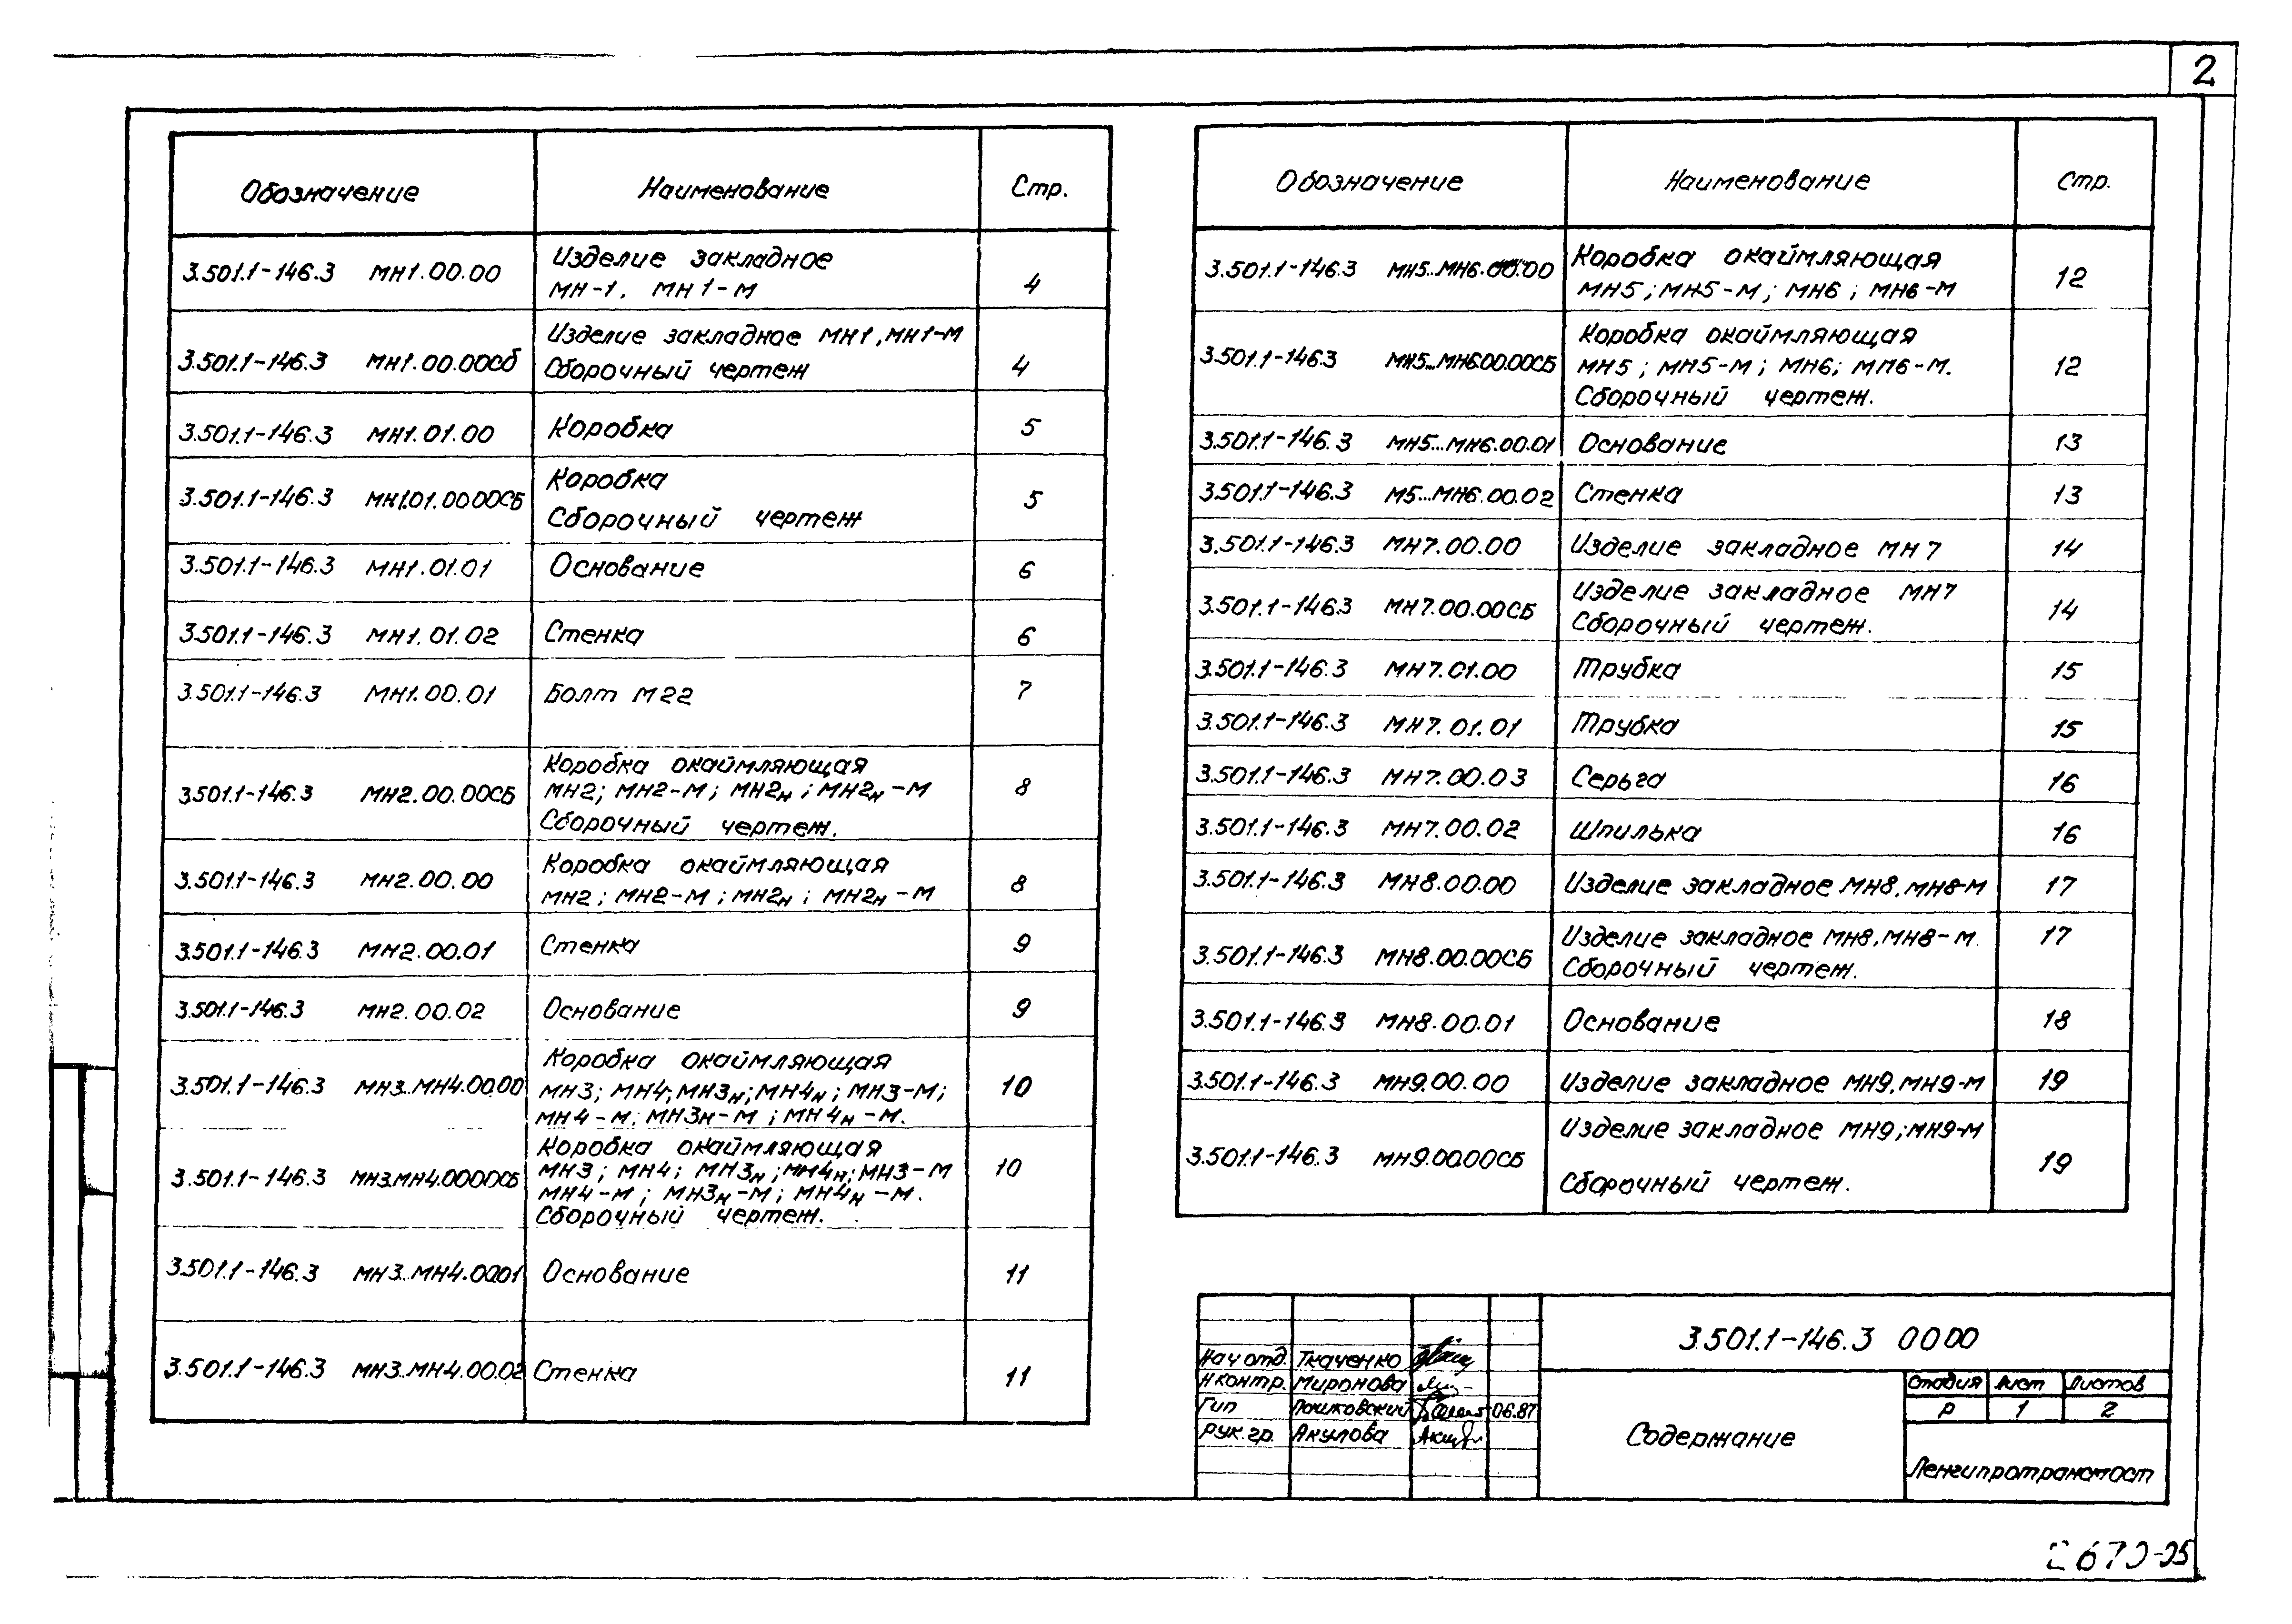 2
Обозначение Наименование Стр.
3.501.1-146.3 МН1.00.00 Изделие закладное
МН-1, МН1-М 4
3.501.1-146.3 МН1.00.00СБ Изделие закладное МН1, МН1-М
Сборочный чертеж 4
3.501.1-146.3 МН1.01.00 Коробка 5
3.501.1-146.3 МН1.01.0000СБ Коробка
Сборочный чертеж 5
3.501.1-146.3 МН1.01.01 Основание 6
3.501.1-146.3 МН1.01.02 Стенка 6
3.501.1-146.3 МН1.00.01 Болт М22 7
3.501.1-146.3 МН2.00.00СБ Коробка окаймляющая
МН2; МН2-М; МН2н; МН2н-М
Сборочный чертеж. 8
3.501.1-146.3 МН2.00.00 Коробка окаймляющая
МН2; МН2-М; МН2н; МН2н-М 8
3.501.1-146.3 МН2.00.01 Стенка 9
3.501.1-146.3 МН2.00.02 Основание 9
3.501.1-146.3 МН3...МН4.00.00 Коробка окаймляющая
МН3; МН4; МН3н; МН4н; МН3-М;
МН4-М; МН3н-М; МН4н-М. 10
3.501.1-146.3 МН3.МН4.0000СБ Коробка окаймляющая
МН3; МН4; МН3н; МН4н; МН3-М
МН4-М; МН3н-М; МН4н-М.
Сборочный чертеж. 10
3.501.1-146.3 МН3...МН4.00.01 Основание 11
3.501.1-146.3 МН3...МН4.00.02 Стенка 11
Обозначение Наименование Стр.
3.501.1-146.3 МН5...МН6.00.00 Коробка окаймляющая
МН5; МН5-М; МН6; МН6-М 12
3.501.1-146.3 МН5...МН6.00.00СБ Коробка окаймляющая
МН5; МН5-М; МН6; МП6-М.
Сборочный чертеж. 12
3.501.1-146.3 МН5...МН6.00.01 Основание 13
3.501.1-146.3 М5...МН6.00.02 Стенка 13
3.501.1-146.3 МН7.00.00 Изделие закладное МН7 14
3.501.1-146.3 МН7.00.00СБ Изделие закладное МН7
Сборочный чертеж. 14
3.501.1-146.3 МН7.01.00 Трубка 15
3.501.1-146.3 МН7.01.01 Трубка 15
3.501.1-146.3 МН7.00.03 Серьга 16
3.501.1-146.3 МН7.00.02 Шпилька 16
3.501.1-146.3 МН8.00.00 Изделие закладное МН8, МН8-М 17
3.501.1-146.3 МН8.00.00СБ Изделие закладное МН8, МН8-М
Сборочный чертеж. 17
3.501.1-146.3 МН8.00.01 Основание 18
3.501.1-146.3 МН9.00.00 Изделие закладное МН9, МН9-М 19
3.501.1-146.3 МН9.00.00СБ Изделие закладное МН9; МН9-М
Сборочный чертеж. 19
3.501.1-146.3 0000
Нач отд. Ткаченко
Н контр. Миронова
Гип Пошковский 06.87
Рук. гр. Акулова
Содержание
Стадия Лист Листов
Р 1 2
Ленгипротрансмост